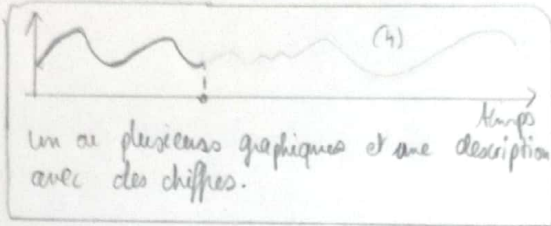 (4)
temps
un ou plusieurs graphiques et une description
avec des chiffres.